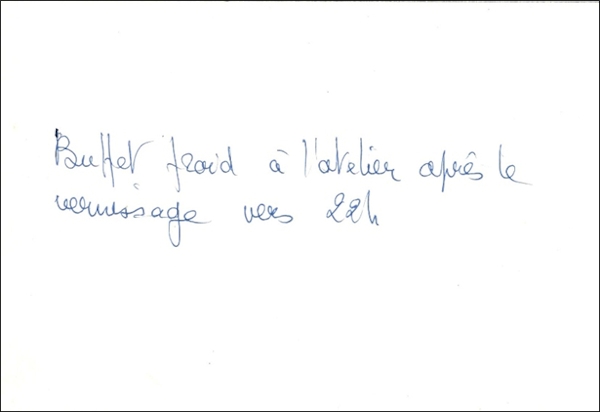 Buffet froid à l'atelier après le
vernissage vers 22h